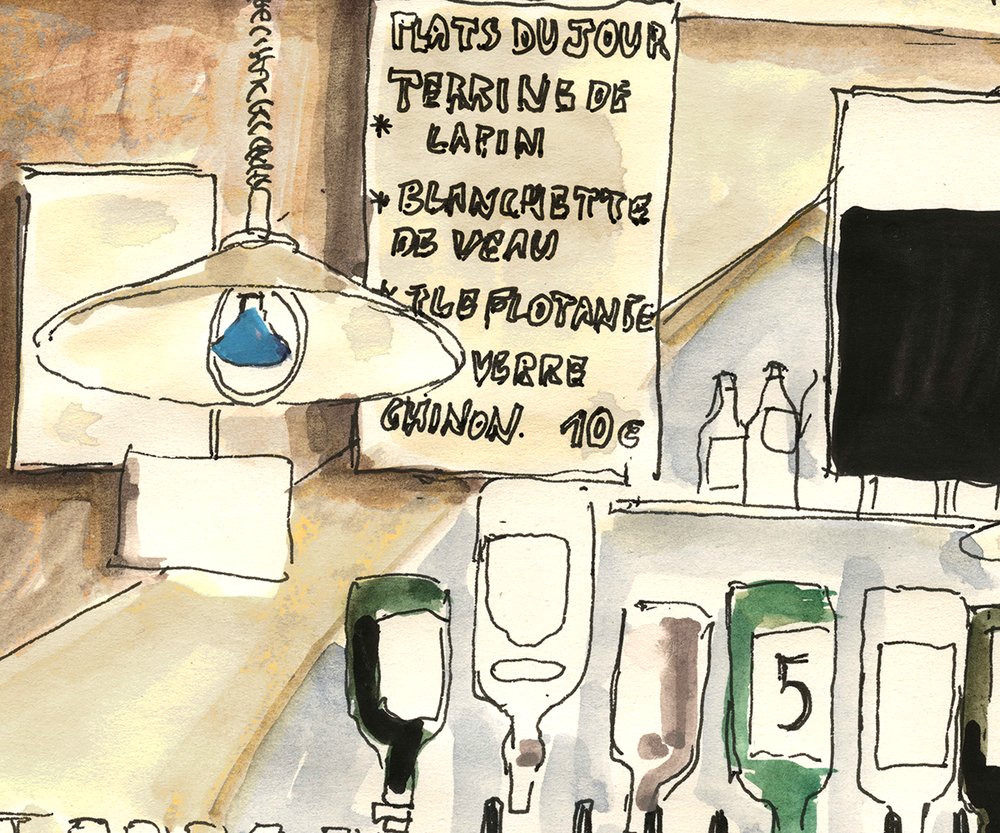 PLATS DU JOUR
TERRINE DE
* LAPIN
* BLANCHETTE
DE VEAU
* ILE FLOTANTE
VERRE
CHINON. 10€
5